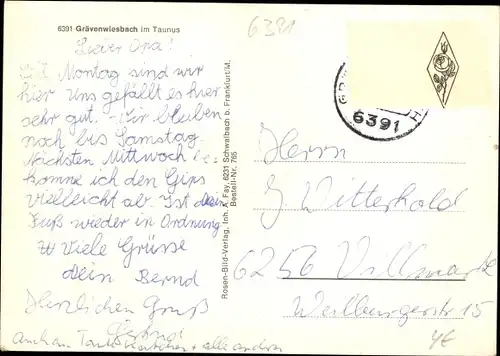 6391 Grävenwiesbach im Taunus
6391
Lieber Opa!
Seit Montag sind wir
hier. Uns gefällt es hier
sehr gut. Wir bleiben
noch bis Samstag.
Nächsten Mittwoch be-
komme ich den Gips
vielleicht ab. Ist dein
Fuß wieder in Ordnung
Viele Grüsse
dein Bernd
Herzlichen Gruß
Auch an Tante + alle andren
Rosen-Bild-Verlag, Inh. A. Fay, 6231 Schwalbach b. Frankfurt/M.
Bestell-Nr. 765
6391
Herrn
J. Witterhold
6256 Villmar
Weilburgerstr 15